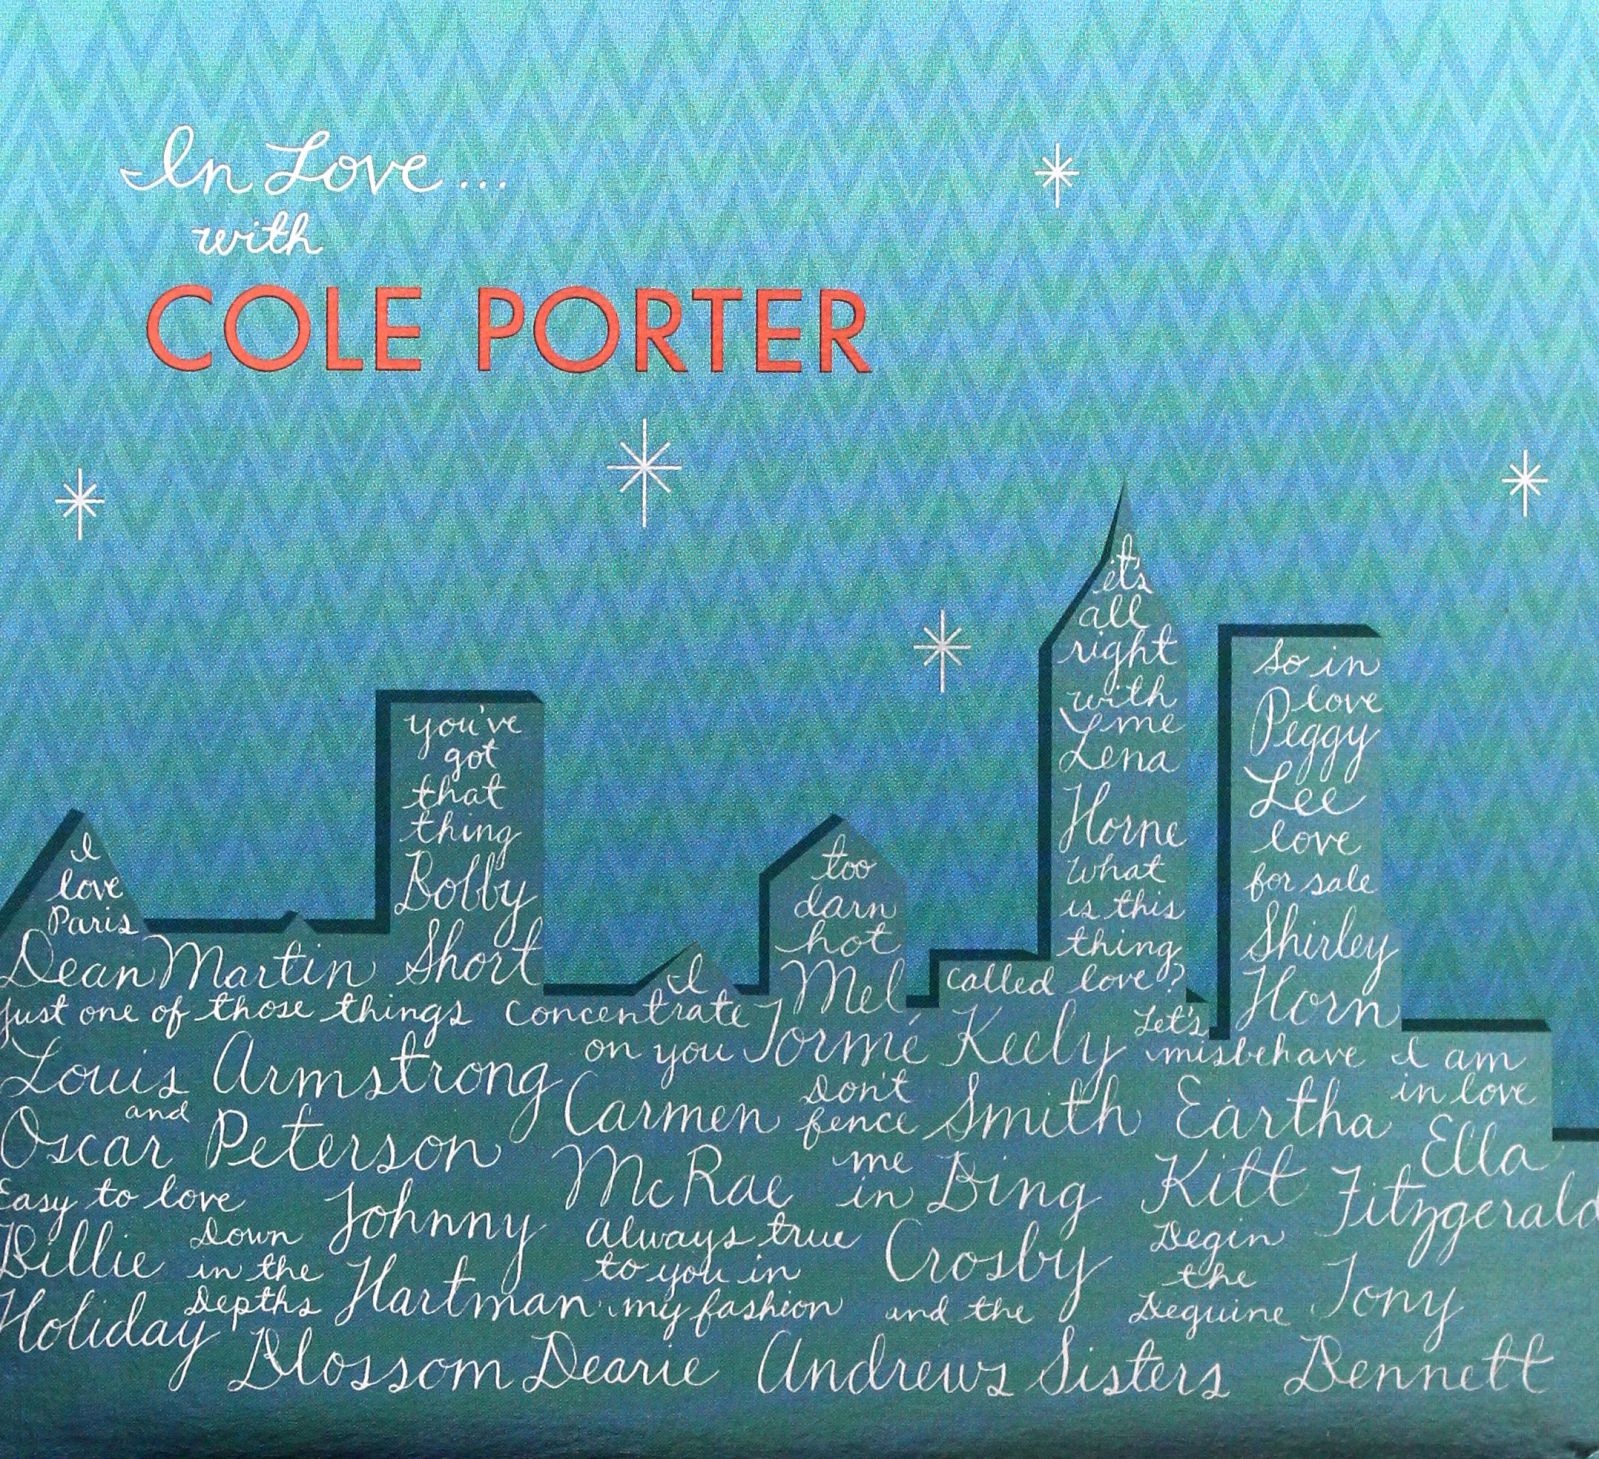 In Love...
with
COLE PORTER
I
love
Paris
Dean Martin
you've
got
that
thing
Bobby
Short
too
darn
hot
Mel
Tormé
it's
all
right
with
me
Lena
Horne
what
is this
thing
called love?
Keely
Smith
so in
love
Peggy
Lee
love
for sale
Shirley
Horn
just one of those things
Louis Armstrong
and
Oscar Peterson
I
concentrate
on you
Carmen
McRae
Let's
misbehave
Eartha
Kitt
I am
in love
Ella
Fitzgerald
Don't
fence
me
in
Bing
Crosby
and the
Andrews Sisters
Easy to love
Billie
Holiday
Down
in the
Depths
Johnny
Hartman
always true
to you in
my fashion
Blossom Dearie
Begin
the
Beguine
Tony
Bennett